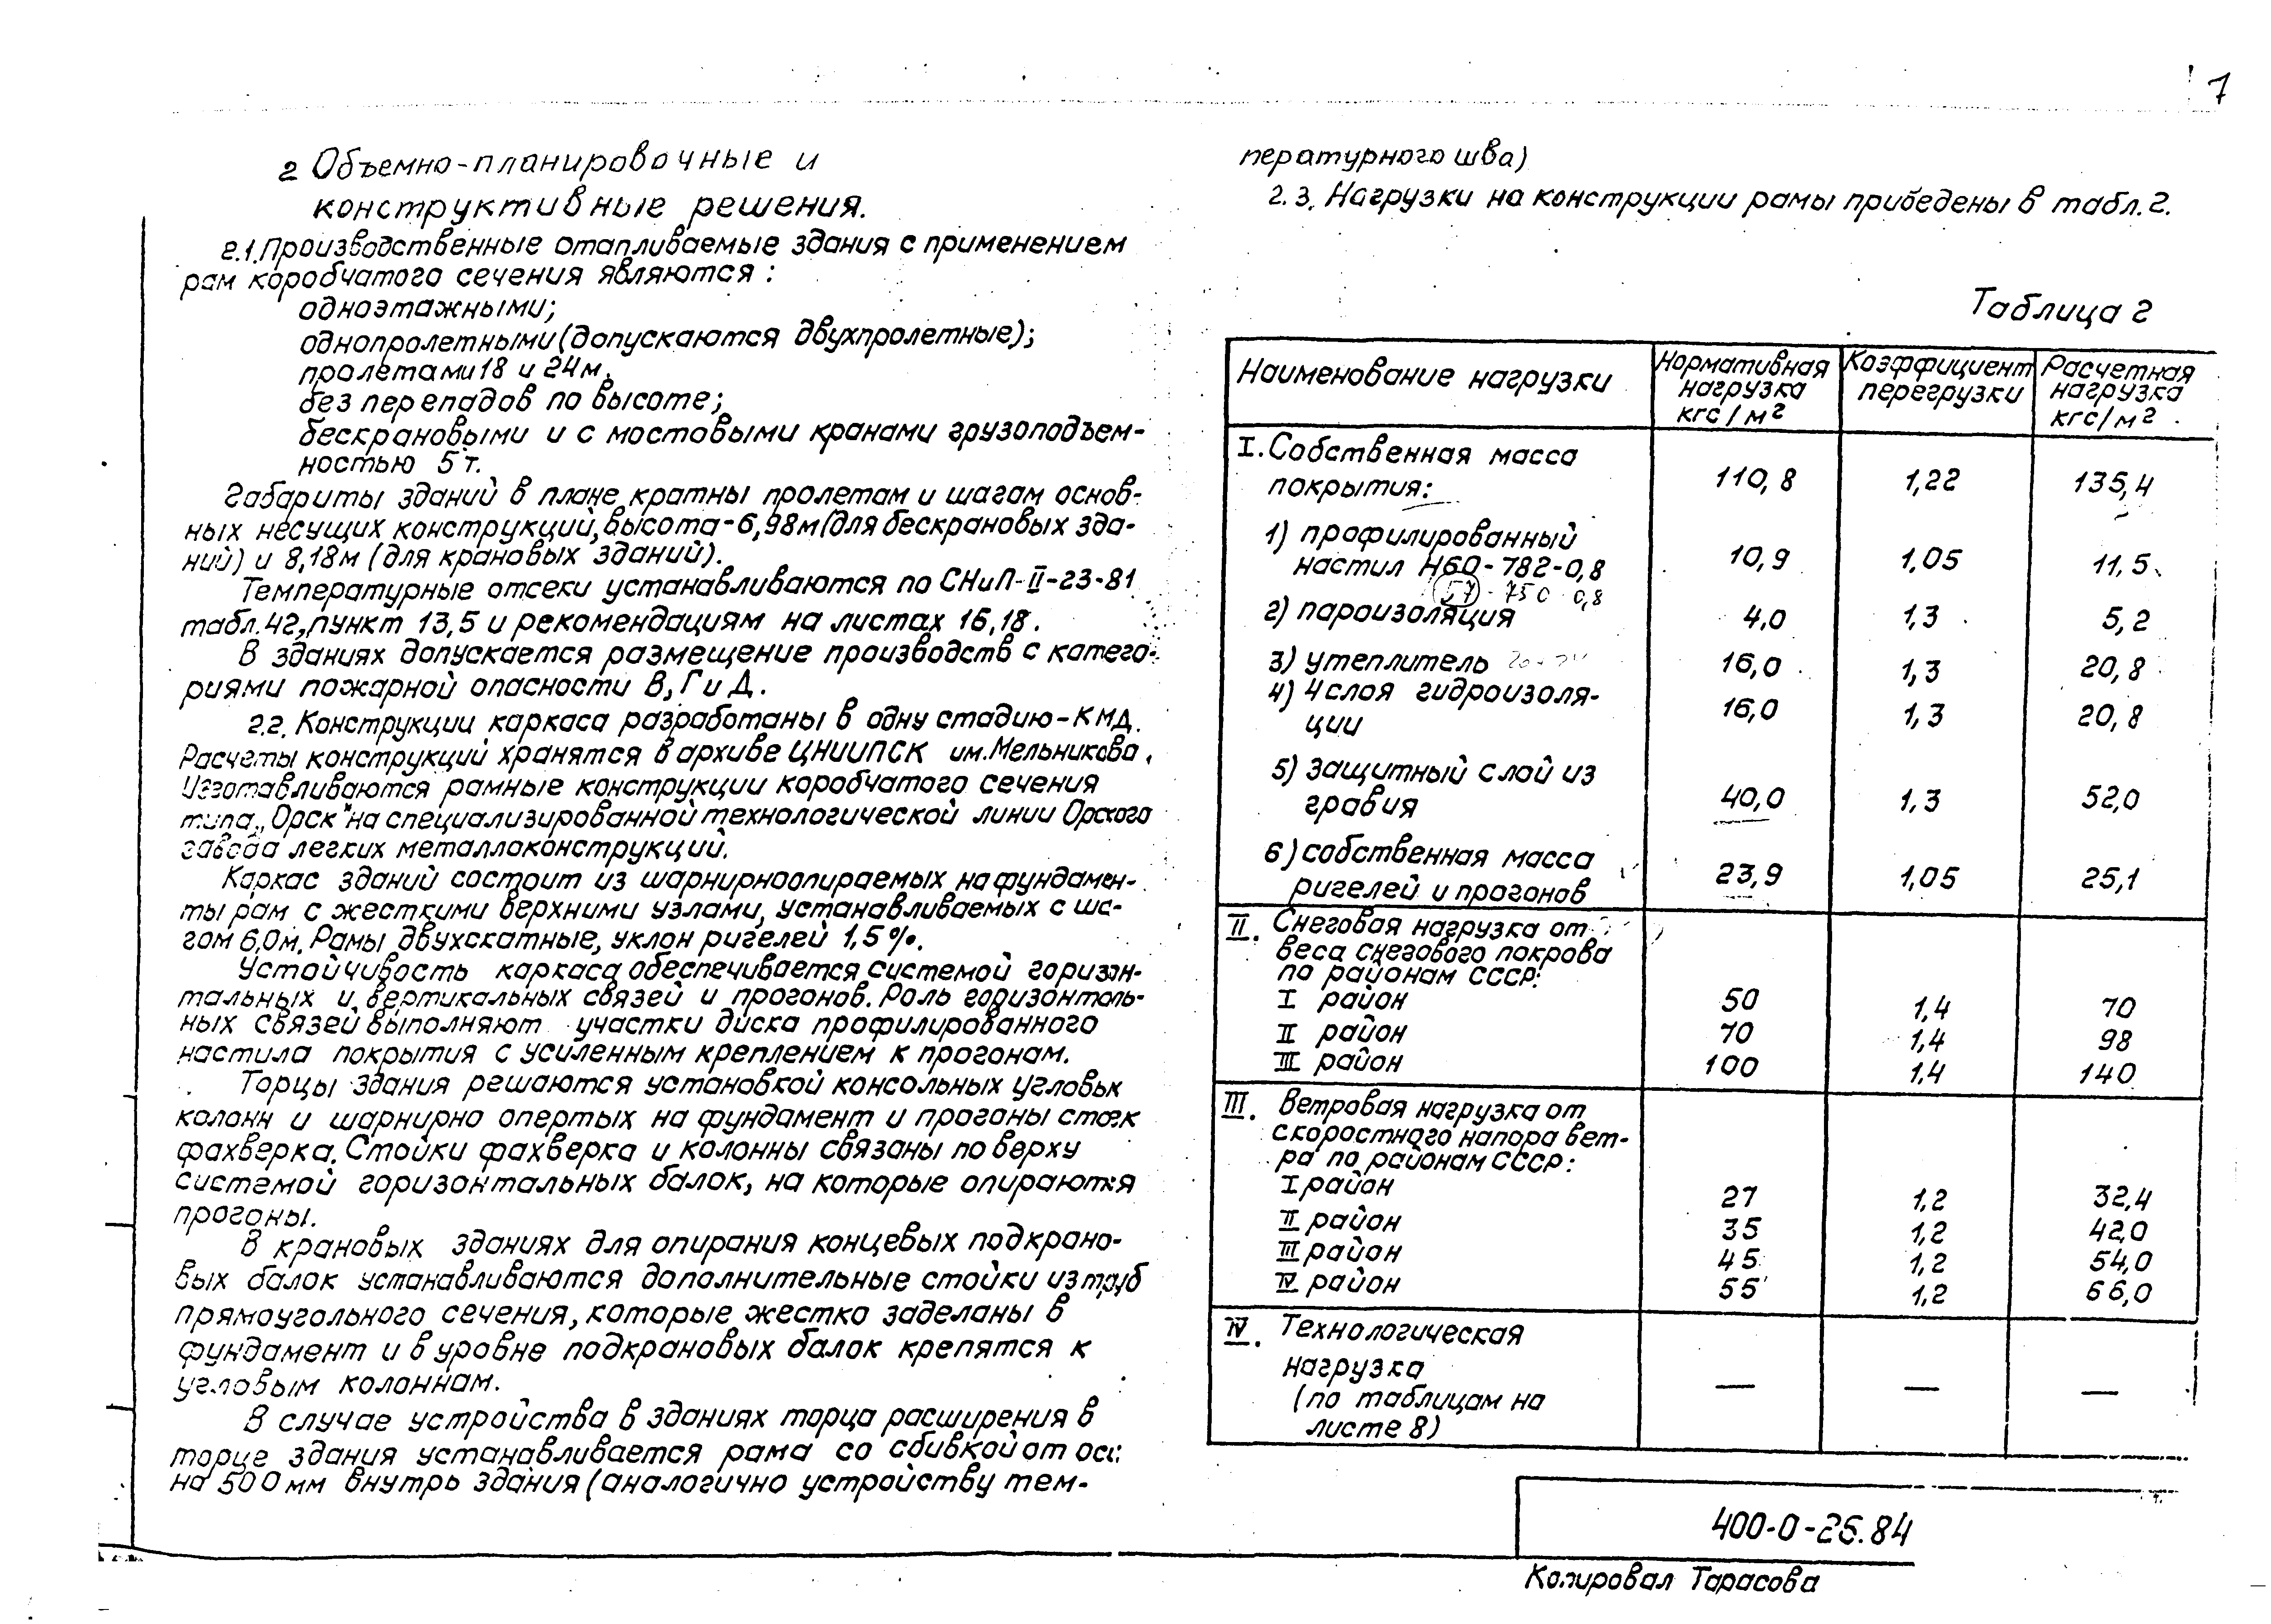 7
2 Объемно-планировочные и
конструктивные решения.
2.1. Производственные отапливаемые здания с применением
рам коробчатого сечения являются:
одноэтажными;
однопролетными (допускаются двухпролетные);
пролетами 18 и 24м,
без перепадов по высоте;
бескрановыми и с мостовыми кранами грузоподъем-
ностью 5т.
Габариты зданий в плане кратны пролетам и шагам основ-
ных несущих конструкций, высота-6,98м (для бескрановых зда-
ний) и 8,18м (для крановых зданий).
Температурные отсеки устанавливаются по СНиП-II-23-81
табл.42, пункт 13,5 и рекомендациям на листах 16,18.
В зданиях допускается размещение производств с катего-
риями пожарной опасности В, Г и Д.
2.2. Конструкции каркаса разработаны в одну стадию-КМД.
Расчеты конструкций хранятся в архиве ЦНИИПСК им. Мельникова.
Изготавливаются рамные конструкции коробчатого сечения
типа „Орск" на специализированной технологической линии Орского
завода легких металлоконструкций.
Каркас зданий состоит из шарнирноопираемых на фундамен-
ты рам с жесткими верхними узлами, устанавливаемых с ша-
гом 6,0м. Рамы двухскатные, уклон ригелей 1,5%.
Устойчивость каркаса обеспечивается системой горизон-
тальных и вертикальных связей и прогонов. Роль горизонталь-
ных связей выполняют участки диска профилированного
настила покрытия с усиленным креплением к прогонам.
Торцы здания решаются установкой консольных угловых
колонн и шарнирно опертых на фундамент и прогоны стоек
фахверка. Стойки фахверка и колонны связаны по верху
системой горизонтальных балок, на которые опираются
прогоны.
В крановых зданиях для опирания концевых подкрано-
вых балок устанавливаются дополнительные стойки из труб
прямоугольного сечения, которые жестко заделаны в
фундамент и в уровне подкрановых балок крепятся к
угловым колоннам.
В случае устройства в зданиях торца расширения в
торце здания устанавливается рама со сбивкой от оси
на 500мм внутрь здания (аналогично устройству тем-
пературного шва)
2.3. Нагрузки на конструкции рамы приведены в табл.2.
Таблица 2
Наименование нагрузки Нормативная нагрузка кгс/м² Коэффициент перегрузки Расчетная нагрузка кгс/м²
I. Собственная масса
покрытия: 110,8 1,22 135,4
1) профилированный
настил Н60-782-0,8 10,9 1,05 11,5
57-750 0,8
2) пароизоляция 4,0 1,3 5,2
3) утеплитель 16,0 1,3 20,8
4) 4 слоя гидроизоля-
ции 16,0 1,3 20,8
5) защитный слой из
гравия 40,0 1,3 52,0
6) собственная масса
ригелей и прогонов 23,9 1,05 25,1
II. Снеговая нагрузка от
веса снегового покрова
по районам СССР:
I район 50 1,4 70
II район 70 1,4 98
III район 100 1,4 140
III. Ветровая нагрузка от
скоростного напора вет-
ра по районам СССР:
I район 27 1,2 32,4
II район 35 1,2 42,0
III район 45 1,2 54,0
IV район 55 1,2 66,0
IV. Технологическая
нагрузка
(по таблицам на — — —
листе 8)
400-0-26.84
Копировал Тарасова